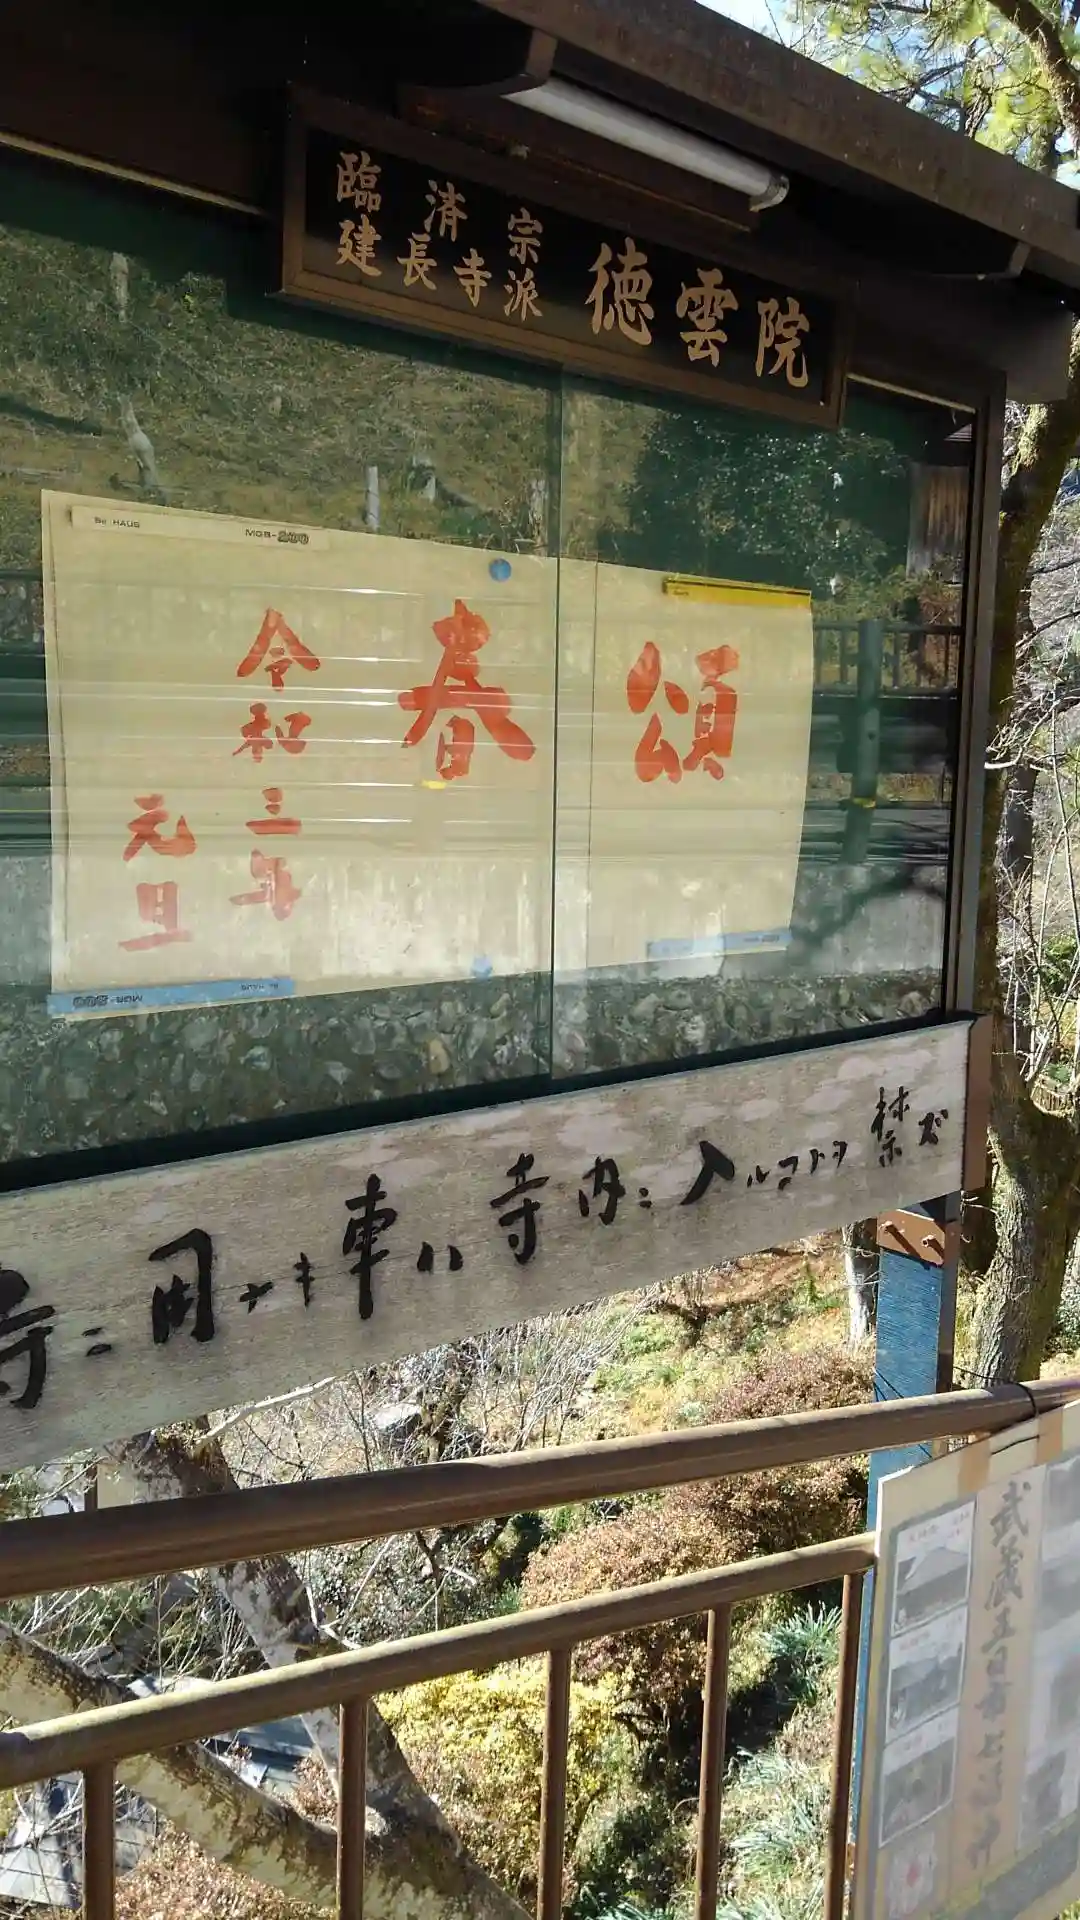 臨済宗
建長寺派
徳雲院
頌
春
令和三年
元旦
Be HAUS
MGB-200
寺ニ用ナキ車ハ寺内ニ入ルコトヲ禁ズ
武蔵五日市七福神